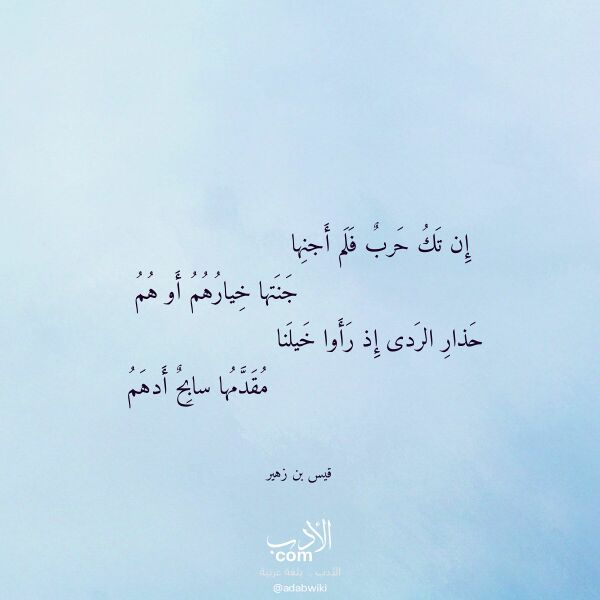 إِن تَكُ حَربٌ فَلَم أَجنِها
جَنَتها خِيارُهُمُ أَو هُمُ
حَذارِ الرَدى إِذ رَأَوا خَيلَنا
مُقَدَّمُها سابِحٌ أَدهَمُ
قيس بن زهير
الأدب
com
الأدب .. بلغة عربية
@adabwiki